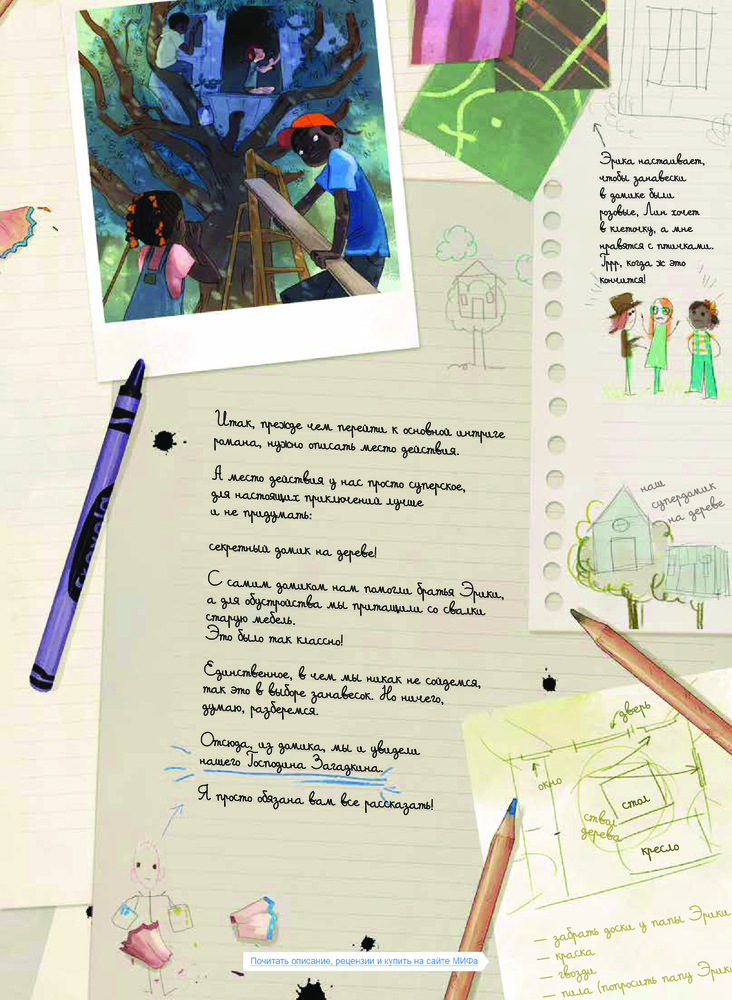 Эрика настаивает,
чтобы занавески
в домике были
розовые, Лин хочет
в клеточку, а мне
нравятся с птичками.
Гррр, когда ж это
кончится!
Итак, прежде чем перейти к основной интриге
романа, нужно описать место действия.
А место действия у нас просто суперское,
для настоящих приключений лучше
и не придумать:
секретный домик на дереве!
С самим домиком нам помогли братья Эрики,
а для обустройства мы притащили со свалки
старую мебель.
Это было так классно!
Единственное, в чем мы никак не сойдемся,
так это в выборе занавесок. Но ничего,
думаю, разберемся.
Отсюда, из домика, мы и увидели
нашего Господина Загадкина.
Я просто обязана вам все рассказать!
наш
супердомик
на дереве
дверь
окно
стол
ствол
дерева
кресло
— забрать доски у папы Эрики
— краска
— гвозди
— пила (попросить папу Эрики
Crayola
Почитать описание, рецензии и купить на сайте МИФа